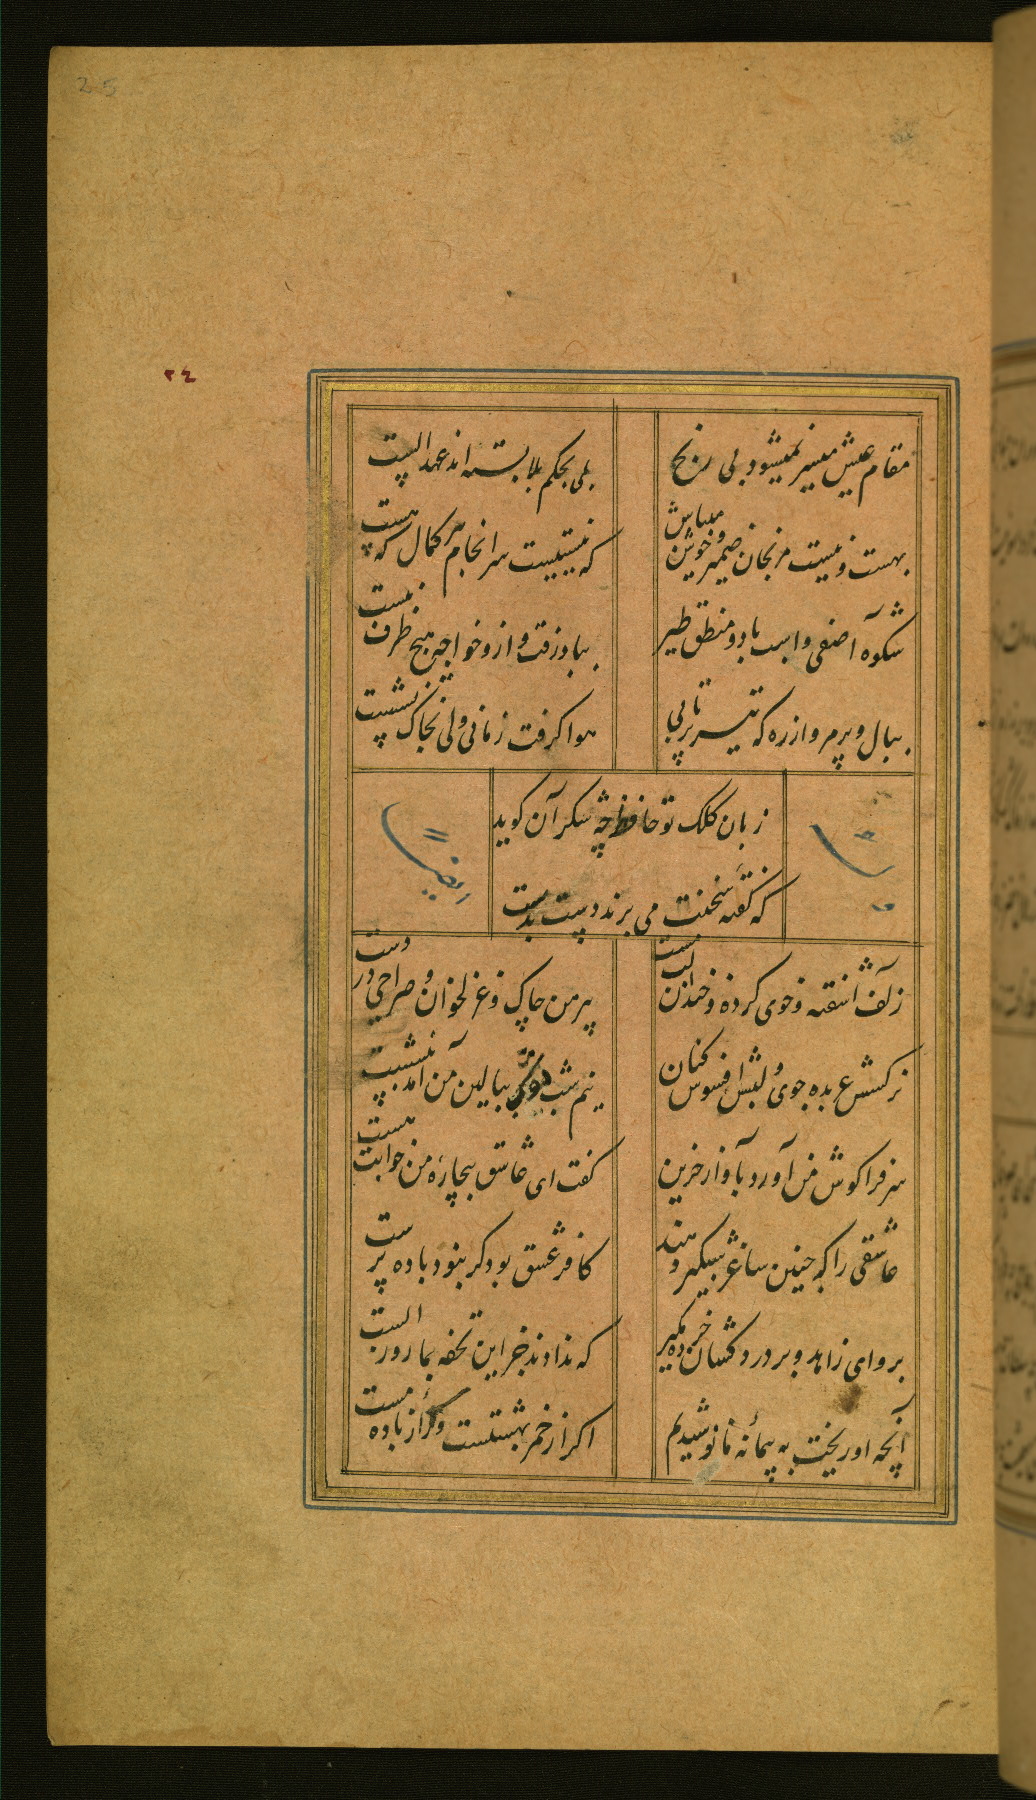 25
۲٤
مقام عیش میسر نمیشود بی رنج بلی بحکم بلا بسته اند عهد الست
بهست و نیست مرنجان ضمیر و خوش میباش که نیستیست سرانجام هر کمال که هست
شکوه آصفی و اسب باد و منطق طیر بباد رفت و ازو خواجه هیچ طرف نبست
ببال و پر مرو از ره که تیر پرتابی هوا کرفت زمانی ولی بخاک نشست
زبان کلک تو حافظ چه شکر آن کوید
که کفته سخنت می برند دست بدست
زلف آشفته و خوی کرده و خندان لب مست پیرهن چاک و غزلخوان و صراحی در دست
نرکسش عربده جوی و لبش افسوس کنان نیم شب دوش ببالین من آمد بنشست
سر فرا کوش من آورد بآواز حزین کفت ای عاشق بیچاره من خوابت هست
عاشقی را که چنین ساغر شبکیر دهند کافر عشق بود کر نبود باده پرست
برو ای زاهد و بر دردکشان خرده مکیر که ندادند جز این تحفه بما روز الست
آنچه او ریخت به پیمانه ما نوشیدیم اکر از خمر بهشتست وکر از باده مست